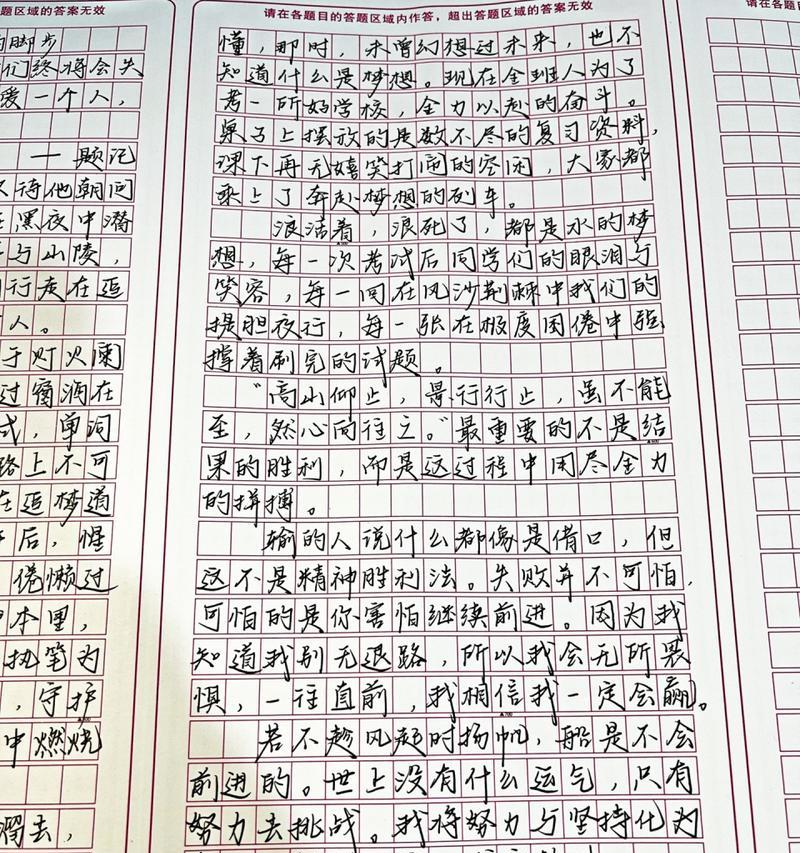 题区域的答案无效
的脚步
们终将会失
爱一个人，
——题记
待他朝问
黑夜中潜
与山陵，
行走在追
人。
于灯火阑
过宿酒在
式，单词
路上不可
在追梦道
后，惺
倦懒过
本里，
执笔为
，守护
中燃烧
去，
请在各题目的答题区域内作答，超出答题区域的答案无效
懂，那时，未曾幻想过未来，也不
知道什么是梦想。现在全班人为了
考一所好学校，全力以赴的奋斗。
桌子上摆放的是数不尽的复习资料，
课下再无嬉笑打闹的空闲，大家都
乘上了奔赴梦想的列车。
浪活着，浪死了，都是水的梦
想，每一次考试后同学们的眼泪与
笑容，每一回在风沙荆棘中我们的
提胆夜行，每一张在极度困倦中强
撑着刷完的试题。
“高山仰止，景行行止，虽不能
至，然心向往之。”最重要的不是结
果的胜利，而是这过程中用尽全力
的拼搏。
输的人说什么都像是借口，但
这不是精神胜利法。失败并不可怕，
可怕的是你害怕继续前进。因为我
知道我别无退路，所以我会无所畏
惧，一往直前，我相信我一定会赢。
若不趁风起时扬帆，船是不会
前进的。世上没有什么运气，只有
努力去挑战。我将努力与坚持化为
请在各题